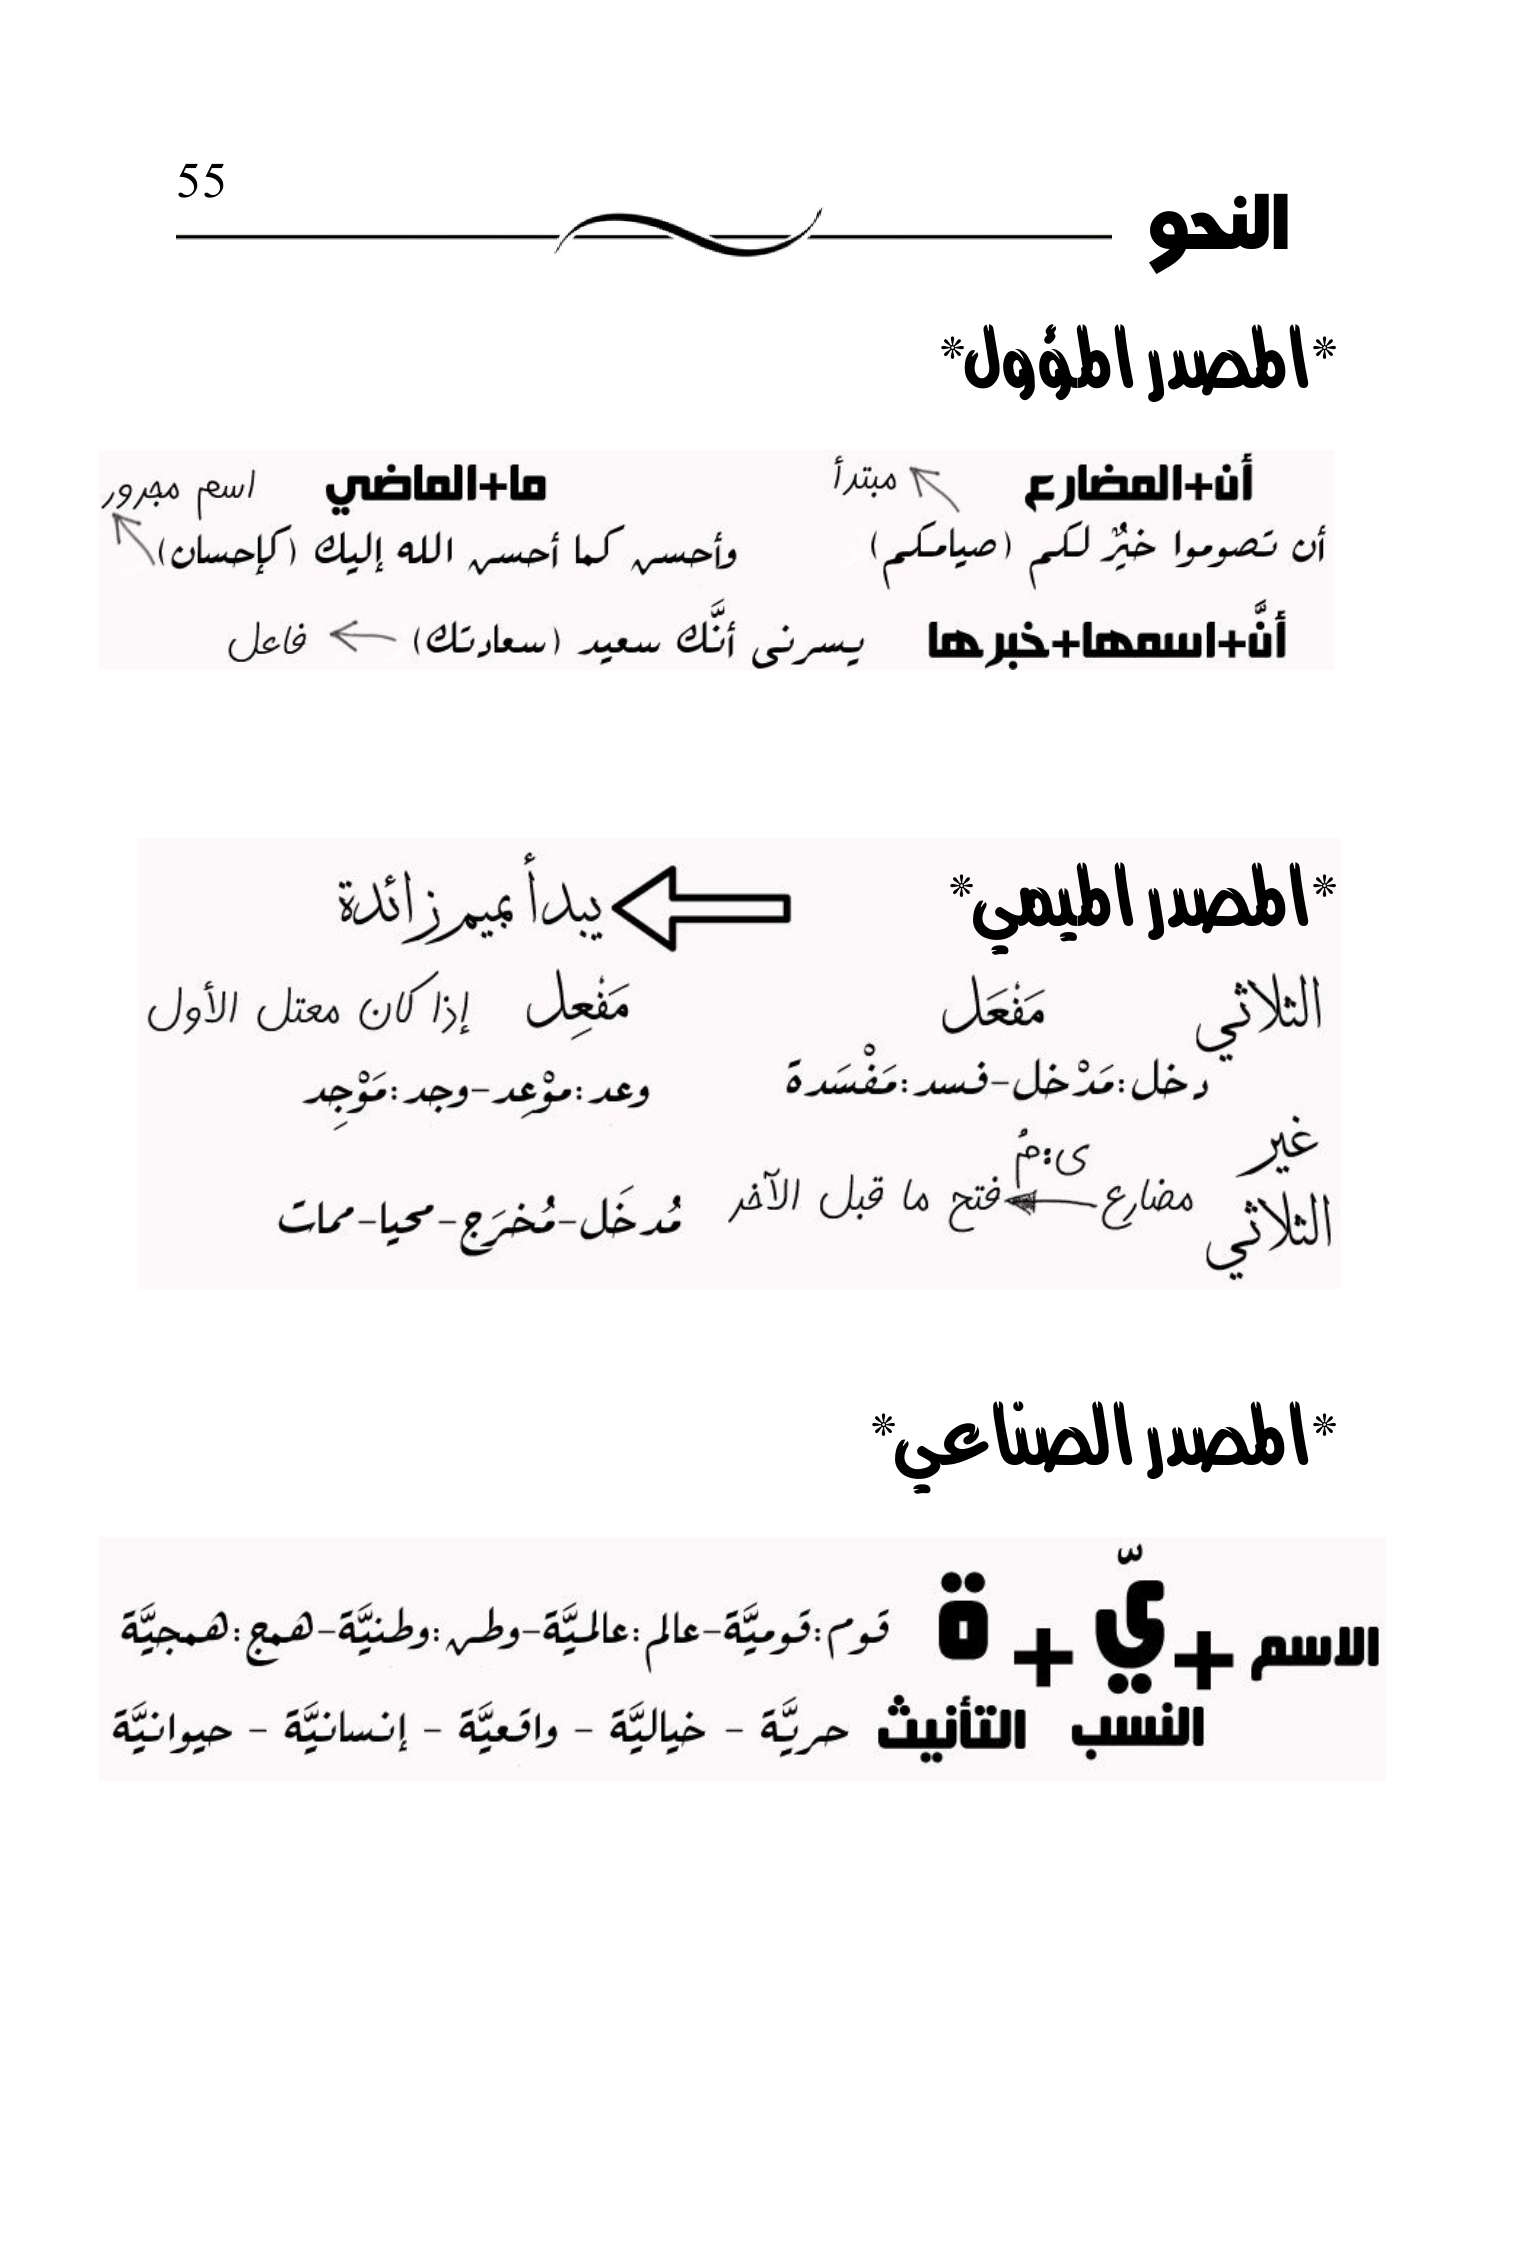 55
النحو
*المصدر المؤول*
أن+المضارع مبتدأ ما+الماضي اسم مجرور
أن تصوموا خيرٌ لكم (صيامكم) وأحسن كما أحسن الله إليك (كإحسان)
أنَّ+اسمها+خبرها يسرنى أنَّك سعيد (سعادتك) فاعل
*المصدر الميمي* يبدأ بميم زائدة
الثلاثي مَفْعَل مَفْعِل إذا كان معتل الأول
دخل:مَدْخل-فسد:مَفْسَدة وعد:موْعِد-وجد:مَوْجِد
غير
ى:مُ
الثلاثي مضارع فتح ما قبل الآخر مُدخَل-مُخرَج-محيا-ممات
*المصدر الصناعي*
الاسم + يّ + ة قوم:قوميَّة-عالم:عالميَّة-وطن:وطنيَّة-همج:همجيَّة
النسب التأنيث حريَّة - خياليَّة - واقعيَّة - إنسانيَّة - حيوانيَّة